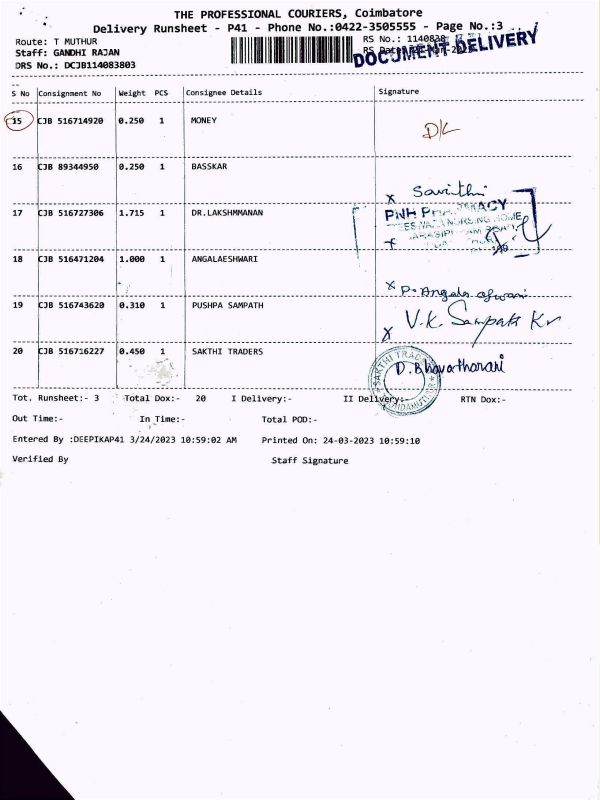 THE PROFESSIONAL COURIERS, Coimbatore
Delivery Runsheet - P41 - Phone No.:0422-3505555 - Page No.:3
Route: T MUTHUR
Staff: GANDHI RAJAN
DRS No.: DCJB114083803
RS No.: 1140838
DOCUMENT DELIVERY
S No Consignment No Weight PCS Consignee Details Signature
15 CJB 516714920 0.250 1 MONEY D/L
16 CJB 89344950 0.250 1 BASSKAR
x Savithi
17 CJB 516727306 1.715 1 DR.LAKSHMMANAN
PNH
18 CJB 516471204 1.000 1 ANGALAESHWARI
x P. Angala
19 CJB 516743620 0.310 1 PUSHPA SAMPATH
x V.K. Sampath Kr
20 CJB 516716227 0.450 1 SAKTHI TRADERS
D. Bhavatharani
SAKTHI
Tot. Runsheet:- 3 Total Dox:- 20 I Delivery:- II Delivery:- RTN Dox:-
Out Time:- In Time:- Total POD:-
Entered By :DEEPIKAP41 3/24/2023 10:59:02 AM Printed On: 24-03-2023 10:59:10
Verified By Staff Signature